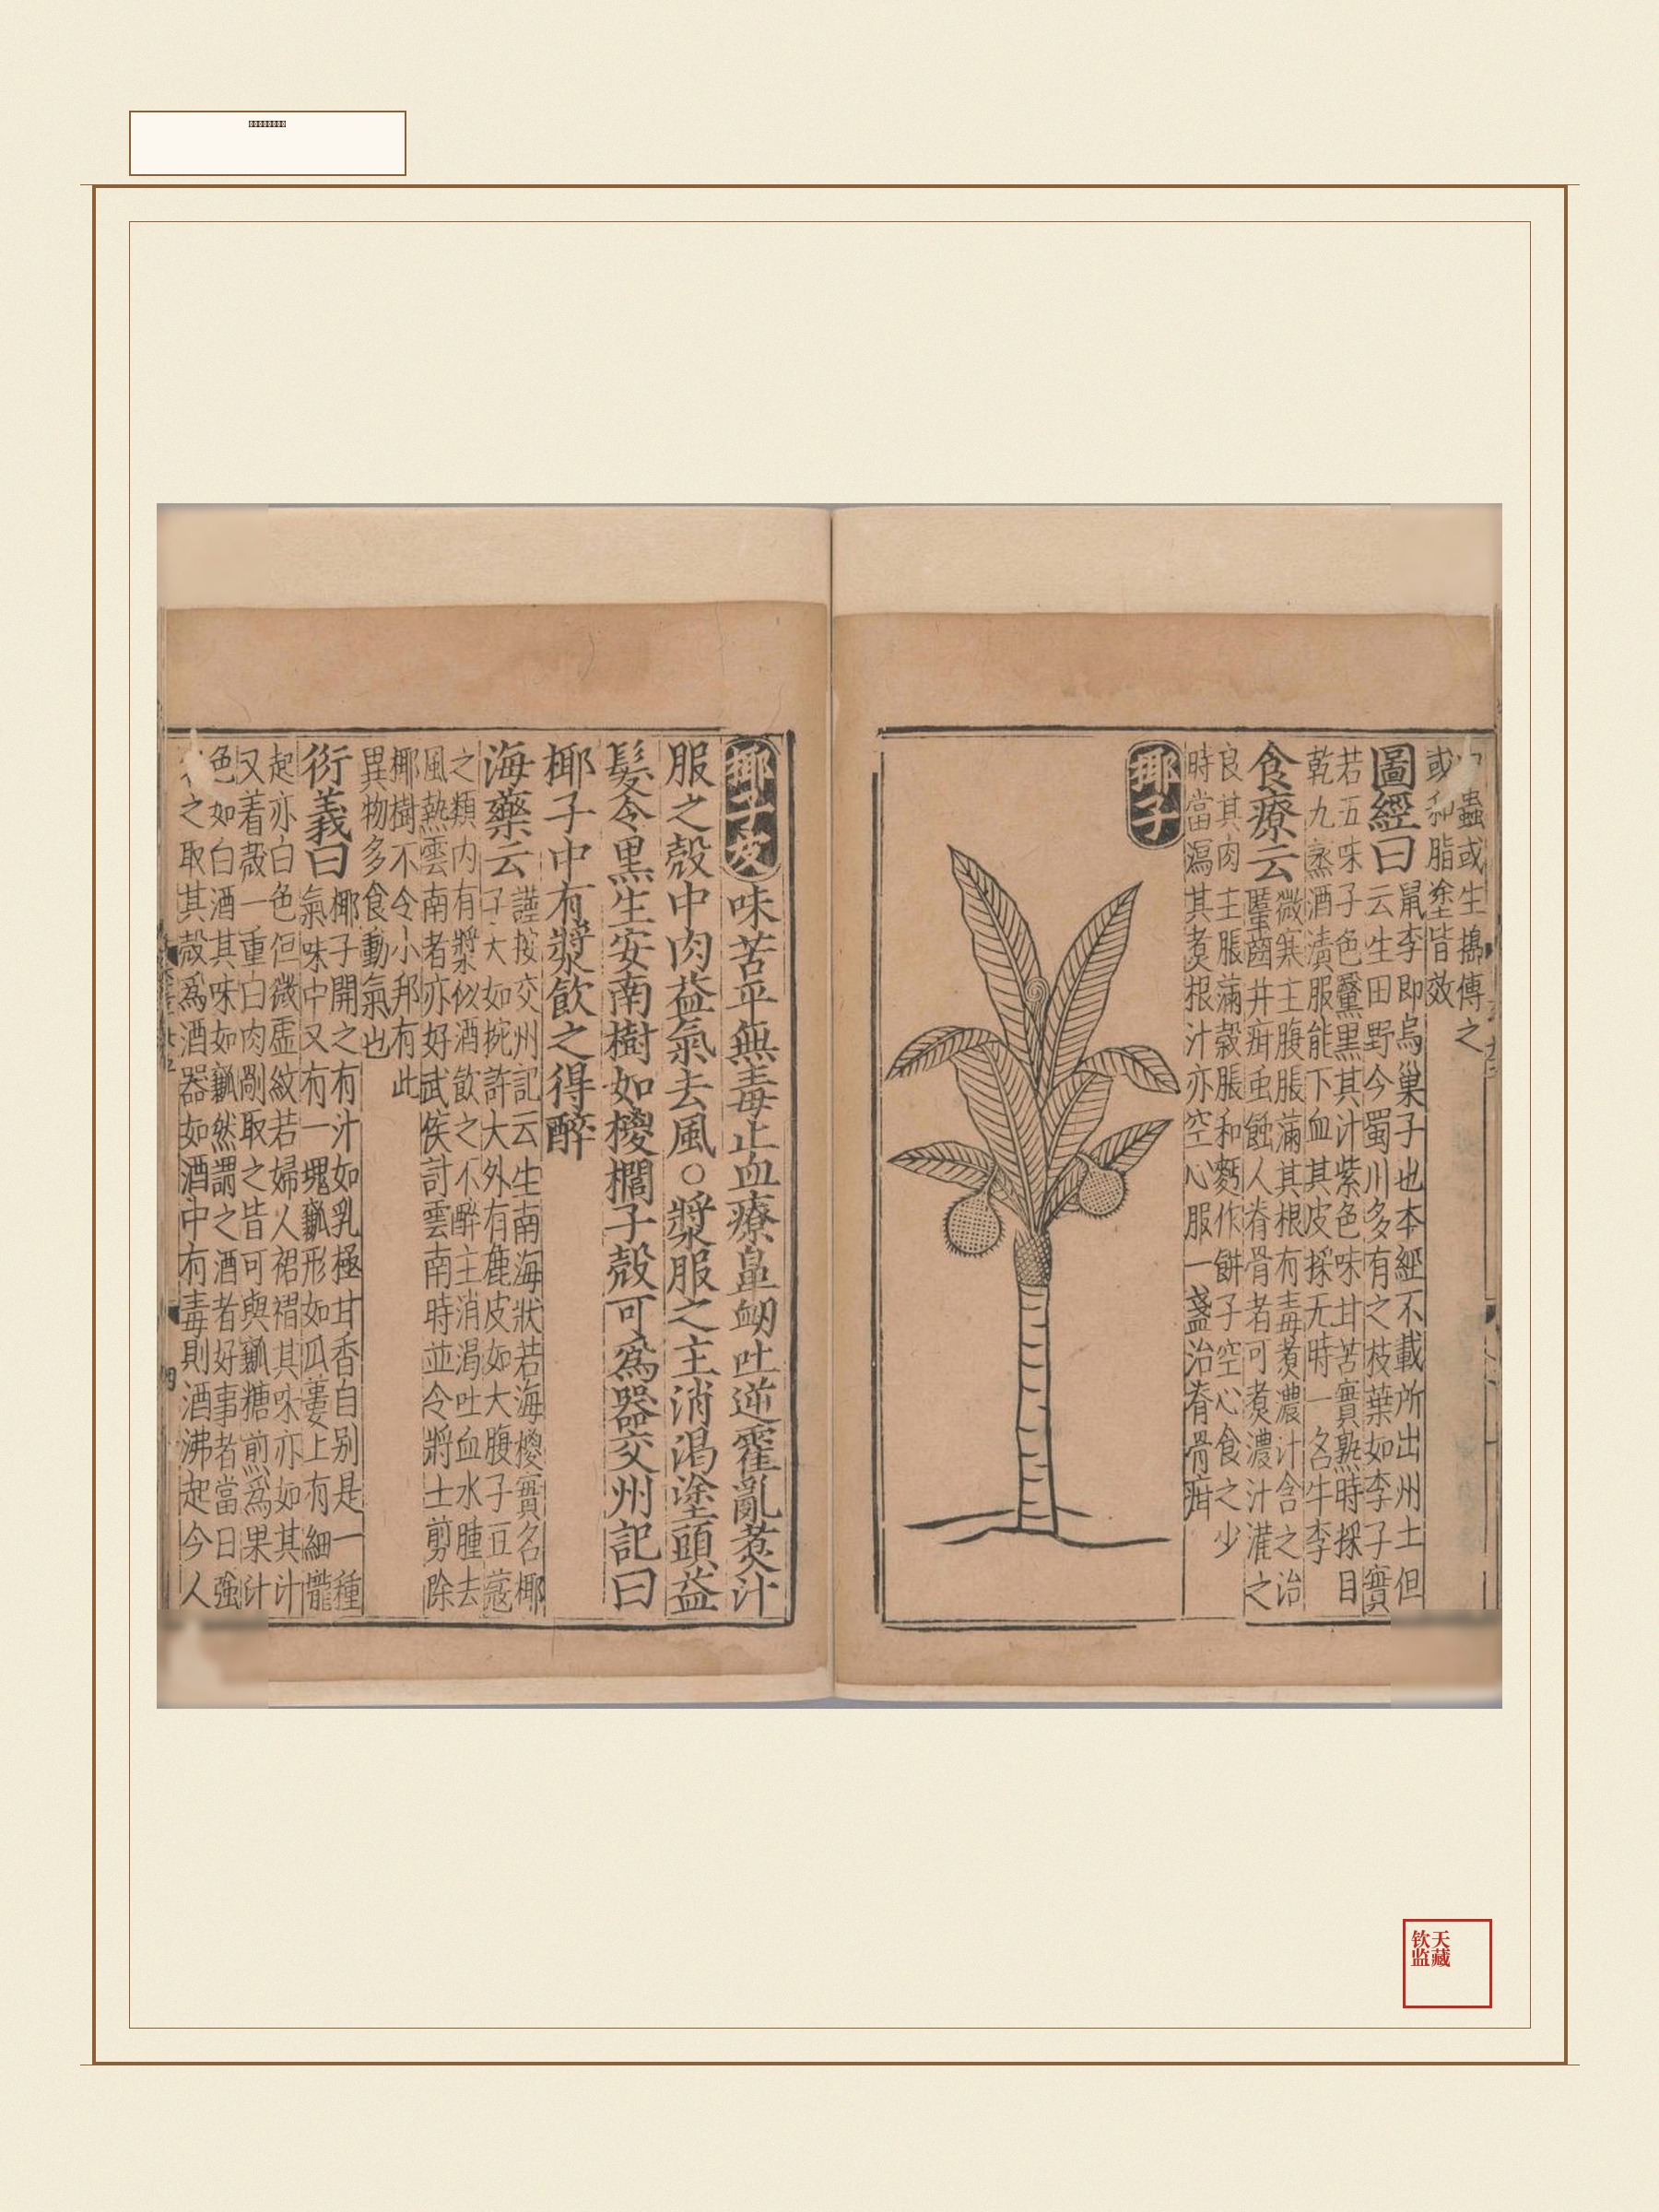 蟲或生搗傅之
或和脂塗皆效
圖經曰
鼠李即烏巢子也本經不載所出州土但
云生田野今蜀川多有之枝葉如李子實
若五味子色黳黑其汁紫色味甘苦實熟時採日
乾九蒸酒漬服能下血其皮採无時一名牛李
食療云
微寒主腹脹滿其根有毒煮濃汁含之治
䘌齒并疳虫蝕人脊骨者可煮濃汁灌之
良其肉主脹滿穀脹和麪作餅子空心食之少
時當瀉其煮根汁亦空心服一盞治脊骨疳
椰子
椰子皮
味苦平無毒止血療鼻衂吐逆霍亂煮汁
服之殼中肉益氣去風○漿服之主消渴塗頭益
髮令黑生安南樹如㯶櫚子殼可為器交州記曰
椰子中有漿飲之得醉
海藥云
謹按交州記云生南海狀若海㯶實名椰
子大如椀許大外有麁皮如大腹子豆蔻
之類內有漿似酒飲之不醉主消渴吐血水腫去
風熱雲南者亦好武侯討雲南時並令將士剪除
椰樹不令小邦有此
異物多食動氣也
衍義曰
椰子開之有汁如乳極甘香自别是一種
氣味中又有一塊瓤形如瓜蔞上有細壠
起亦白色但微虛紋若婦人裙褶其味亦如其汁
又着殼一重白肉剮取之皆可與瓤糖煎為果汁
色如白酒其味如瓤然謂之酒者好事者當日強
之取其殼為酒器如酒中有毒則酒沸起今人
四
钦天
监藏